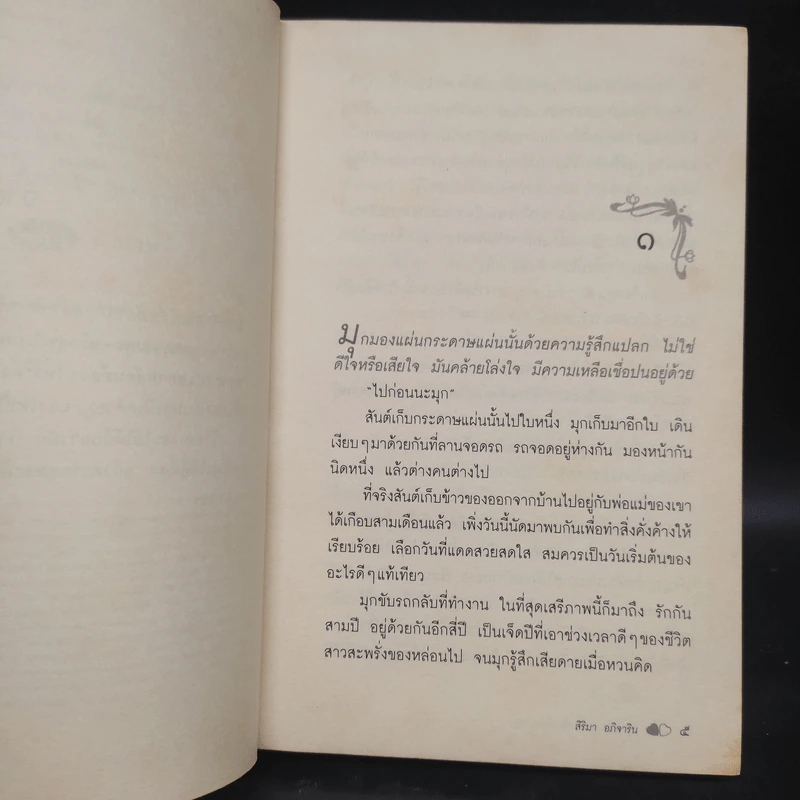 ๑
มุกมองแผ่นกระดาษแผ่นนั้นด้วยความรู้สึกแปลก ไม่ใช่
ดีใจหรือเสียใจ มันคล้ายโล่งใจ มีความเหลือเชื่อปนอยู่ด้วย
“ไปก่อนนะมุก”
สันต์เก็บกระดาษแผ่นนั้นไปใบหนึ่ง มุกเก็บมาอีกใบ เดิน
เงียบๆมาด้วยกันที่ลานจอดรถ รถจอดอยู่ห่างกัน มองหน้ากัน
นิดหนึ่ง แล้วต่างคนต่างไป
ที่จริงสันต์เก็บข้าวของออกจากบ้านไปอยู่กับพ่อแม่ของเขา
ได้เกือบสามเดือนแล้ว เพิ่งวันนี้นัดมาพบกันเพื่อทำสิ่งคั่งค้างให้
เรียบร้อย เลือกวันที่แดดสวยสดใส สมควรเป็นวันเริ่มต้นของ
อะไรดีๆแท้เทียว
มุกขับรถกลับที่ทำงาน ในที่สุดเสรีภาพนี้ก็มาถึง รักกัน
สามปี อยู่ด้วยกันอีกสี่ปี เป็นเจ็ดปีที่เอาช่วงเวลาดีๆของชีวิต
สาวสะพรั่งของหล่อนไป จนมุกรู้สึกเสียดายเมื่อหวนคิด
สิริมา อภิจาริน ๕